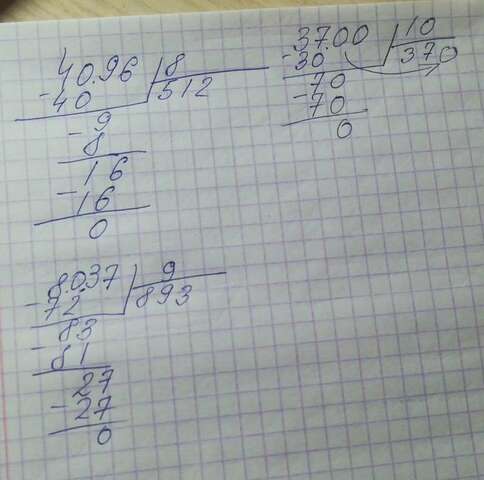 40.96 | 8
- 40 512
- 9
8
- 16
16
0
37.00 | 10
- 30 370
- 70
70
0
8.037 | 9
- 72 893
- 83
81
- 27
27
0